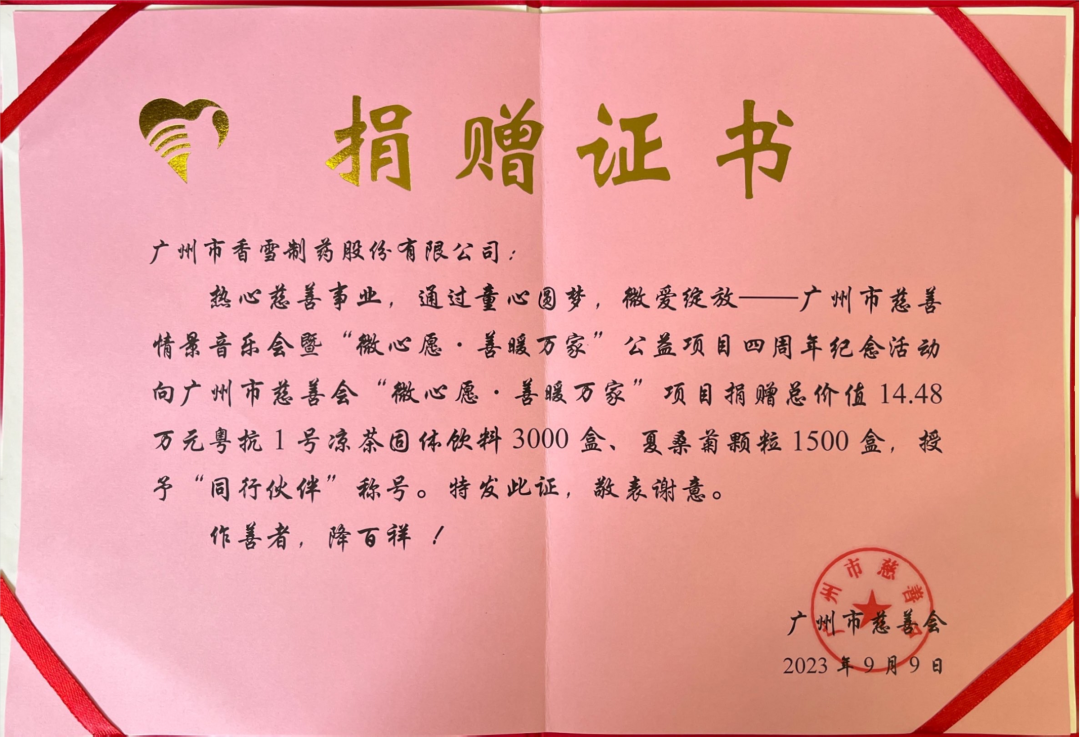 捐赠证书
广州市香雪制药股份有限公司：
热心慈善事业，通过童心圆梦，微爱绽放——广州市慈善
情景音乐会暨“微心愿·善暖万家”公益项目四周年纪念活动
向广州市慈善会“微心愿·善暖万家”项目捐赠总价值14.48
万元粤抗1号凉茶固体饮料3000盒、夏桑菊颗粒1500盒，授
予“同行伙伴”称号。特发此证，敬表谢意。
作善者，降百祥！
州市慈善
广州市慈善会
2023年9月9日